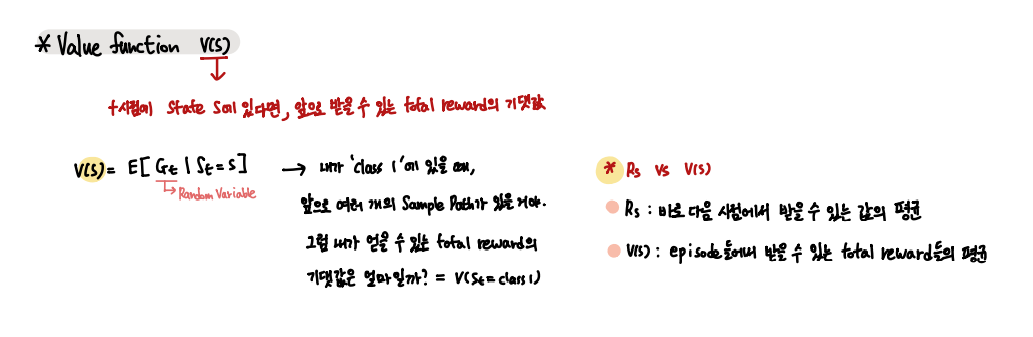 * Value function V(s)
t시점에 State S에 있다면, 앞으로 받을 수 있는 total reward의 기댓값
V(s) = E[Gt | St = s]
Random Variable
→ 내가 'class 1'에 있을 때,
앞으로 여러 개의 Sample Path가 있을 거야.
그럼 내가 얻을 수 있는 total reward의
기댓값은 얼마일까? = V(St = class 1)
* Rs vs V(s)
Rs : 바로 다음 시점에서 받을 수 있는 값의 평균
V(s) : episode들에서 받을 수 있는 total reward들의 평균